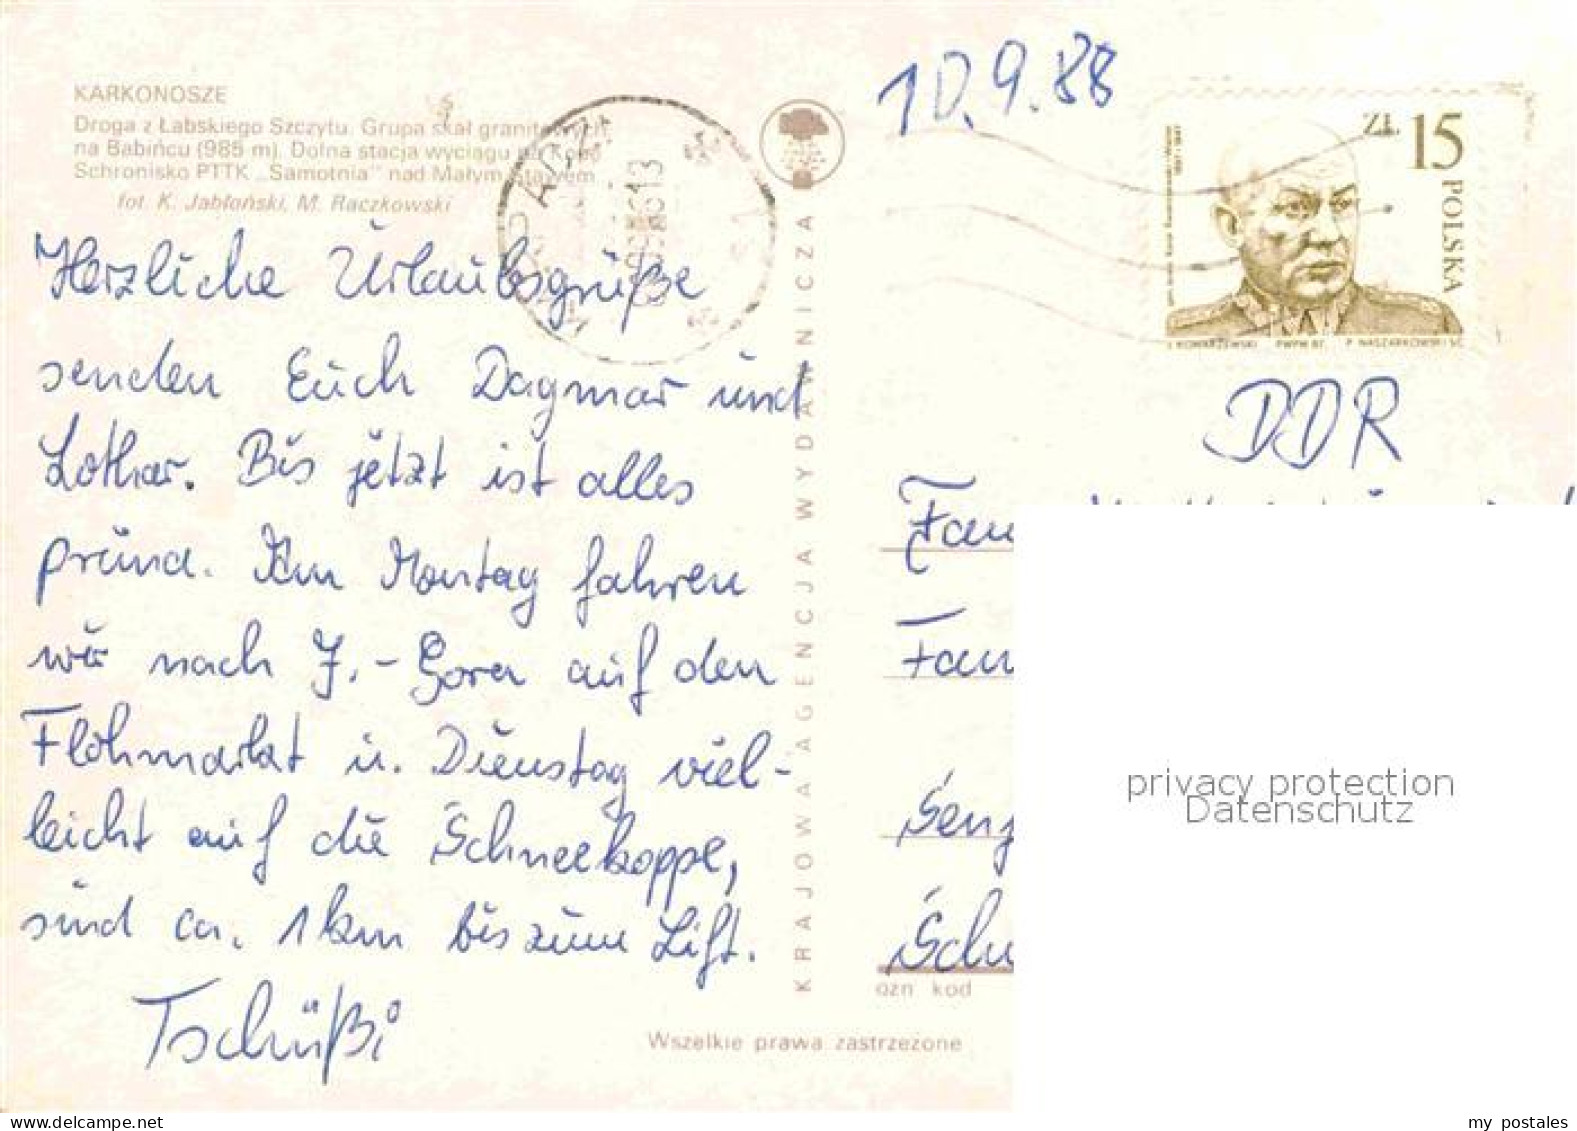 10.9.88
KARKONOSZE
Droga z Łabskiego Szczytu. Grupa skał granitowych
na Babińcu (985 m). Dolna stacja wyciągu na Kopę
Schronisko PTTK „Samotnia" nad Małym Stawem
fot. K. Jabłoński, M. Raczkowski
Herzliche Urlaubsgrüße
senden Euch Dagmar und
Lothar. Bis jetzt ist alles
prima. Am Montag fahren
wir nach J.-Gora auf den
Flohmarkt u. Dienstag viel-
leicht auf die Schneekoppe,
sind ca. 1 km bis zum Lift.
Tschüßi
KRAJOWA AGENCJA WYDAWNICZA
Wszelkie prawa zastrzeżone
ZŁ 15
POLSKA
PWPW 87 P. NASZARKOWSKI SC.
DDR
Fam
Fam
ozn kod
privacy protection
Datenschutz
my postales